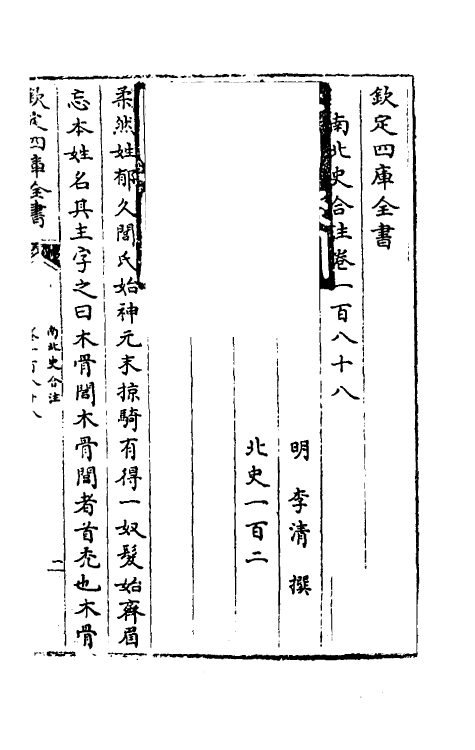 欽定四庫全書
南北史合注卷一百八十八
明 李清 撰
北史一百二
柔然姓郁久閭氏始神元末掠騎有得一奴髮始齊眉
忘本姓名其主字之曰木骨閭木骨閭者首禿也木骨
欽定四庫全書
南北史合注
二